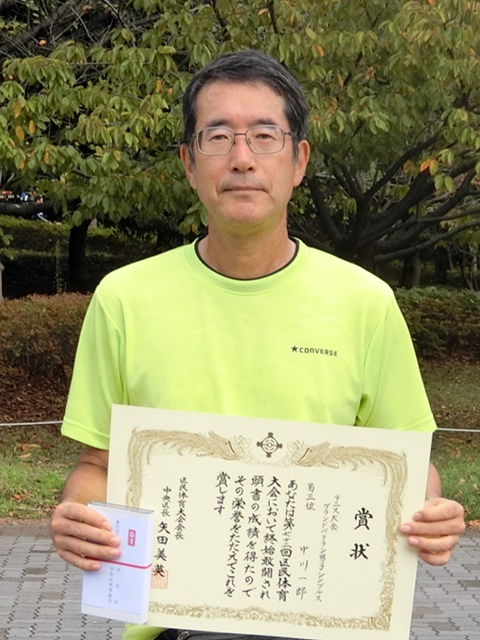 ★CONVERSE
賞状
テニス大会
グランドベテラン男子シングルス
第三位
中川一郎
あなたは第七十三回区民体育
大会において終始敢闘され
頭書の成績を得たので
その栄誉をたたえてこれを
賞します
区民体育大会会長
中央区長 矢田美英